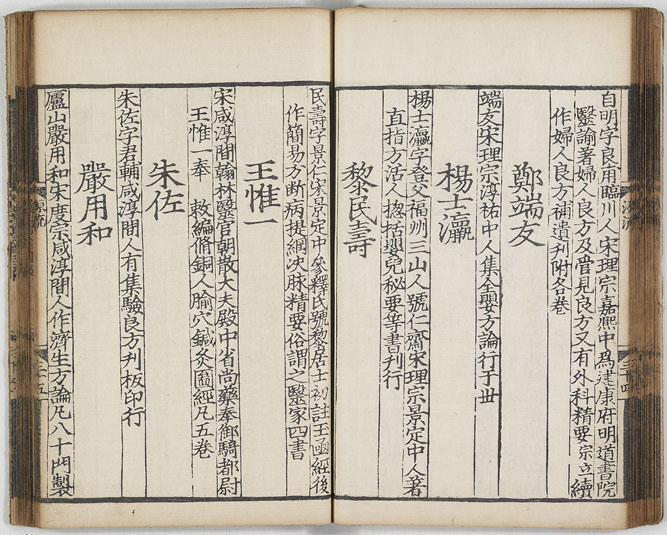 自明字良甫臨川人宋理宗嘉熙中爲建康府明道書院
醫諭著婦人良方及管見良方又有外科精要宗立續
作婦人良方補遺刋附各卷
鄭端友
端友宋理宗淳祐中人集全嬰方論行于丗
楊士瀛
楊士瀛字登父福州三山人號仁齋宋理宗景定中人著
直指方活人揔括嬰兒秘要等書刋行
黎民壽
民壽字景仁宋景定中參釋氏號黎居士初註玉函經後
作簡易方断病提綱决脉精要俗謂之醫家四書
王惟一
宋咸淳間翰林醫官朝散大夫殿中省尚藥奉御騎都尉
王惟一奉 敕編脩銅人腧穴鍼灸圖經凡五卷
朱佐
朱佐字君輔咸淳間人有集驗良方刋板印行
嚴用和
廬山嚴用和宋度宗咸淳間人作濟生方論凡八十門製